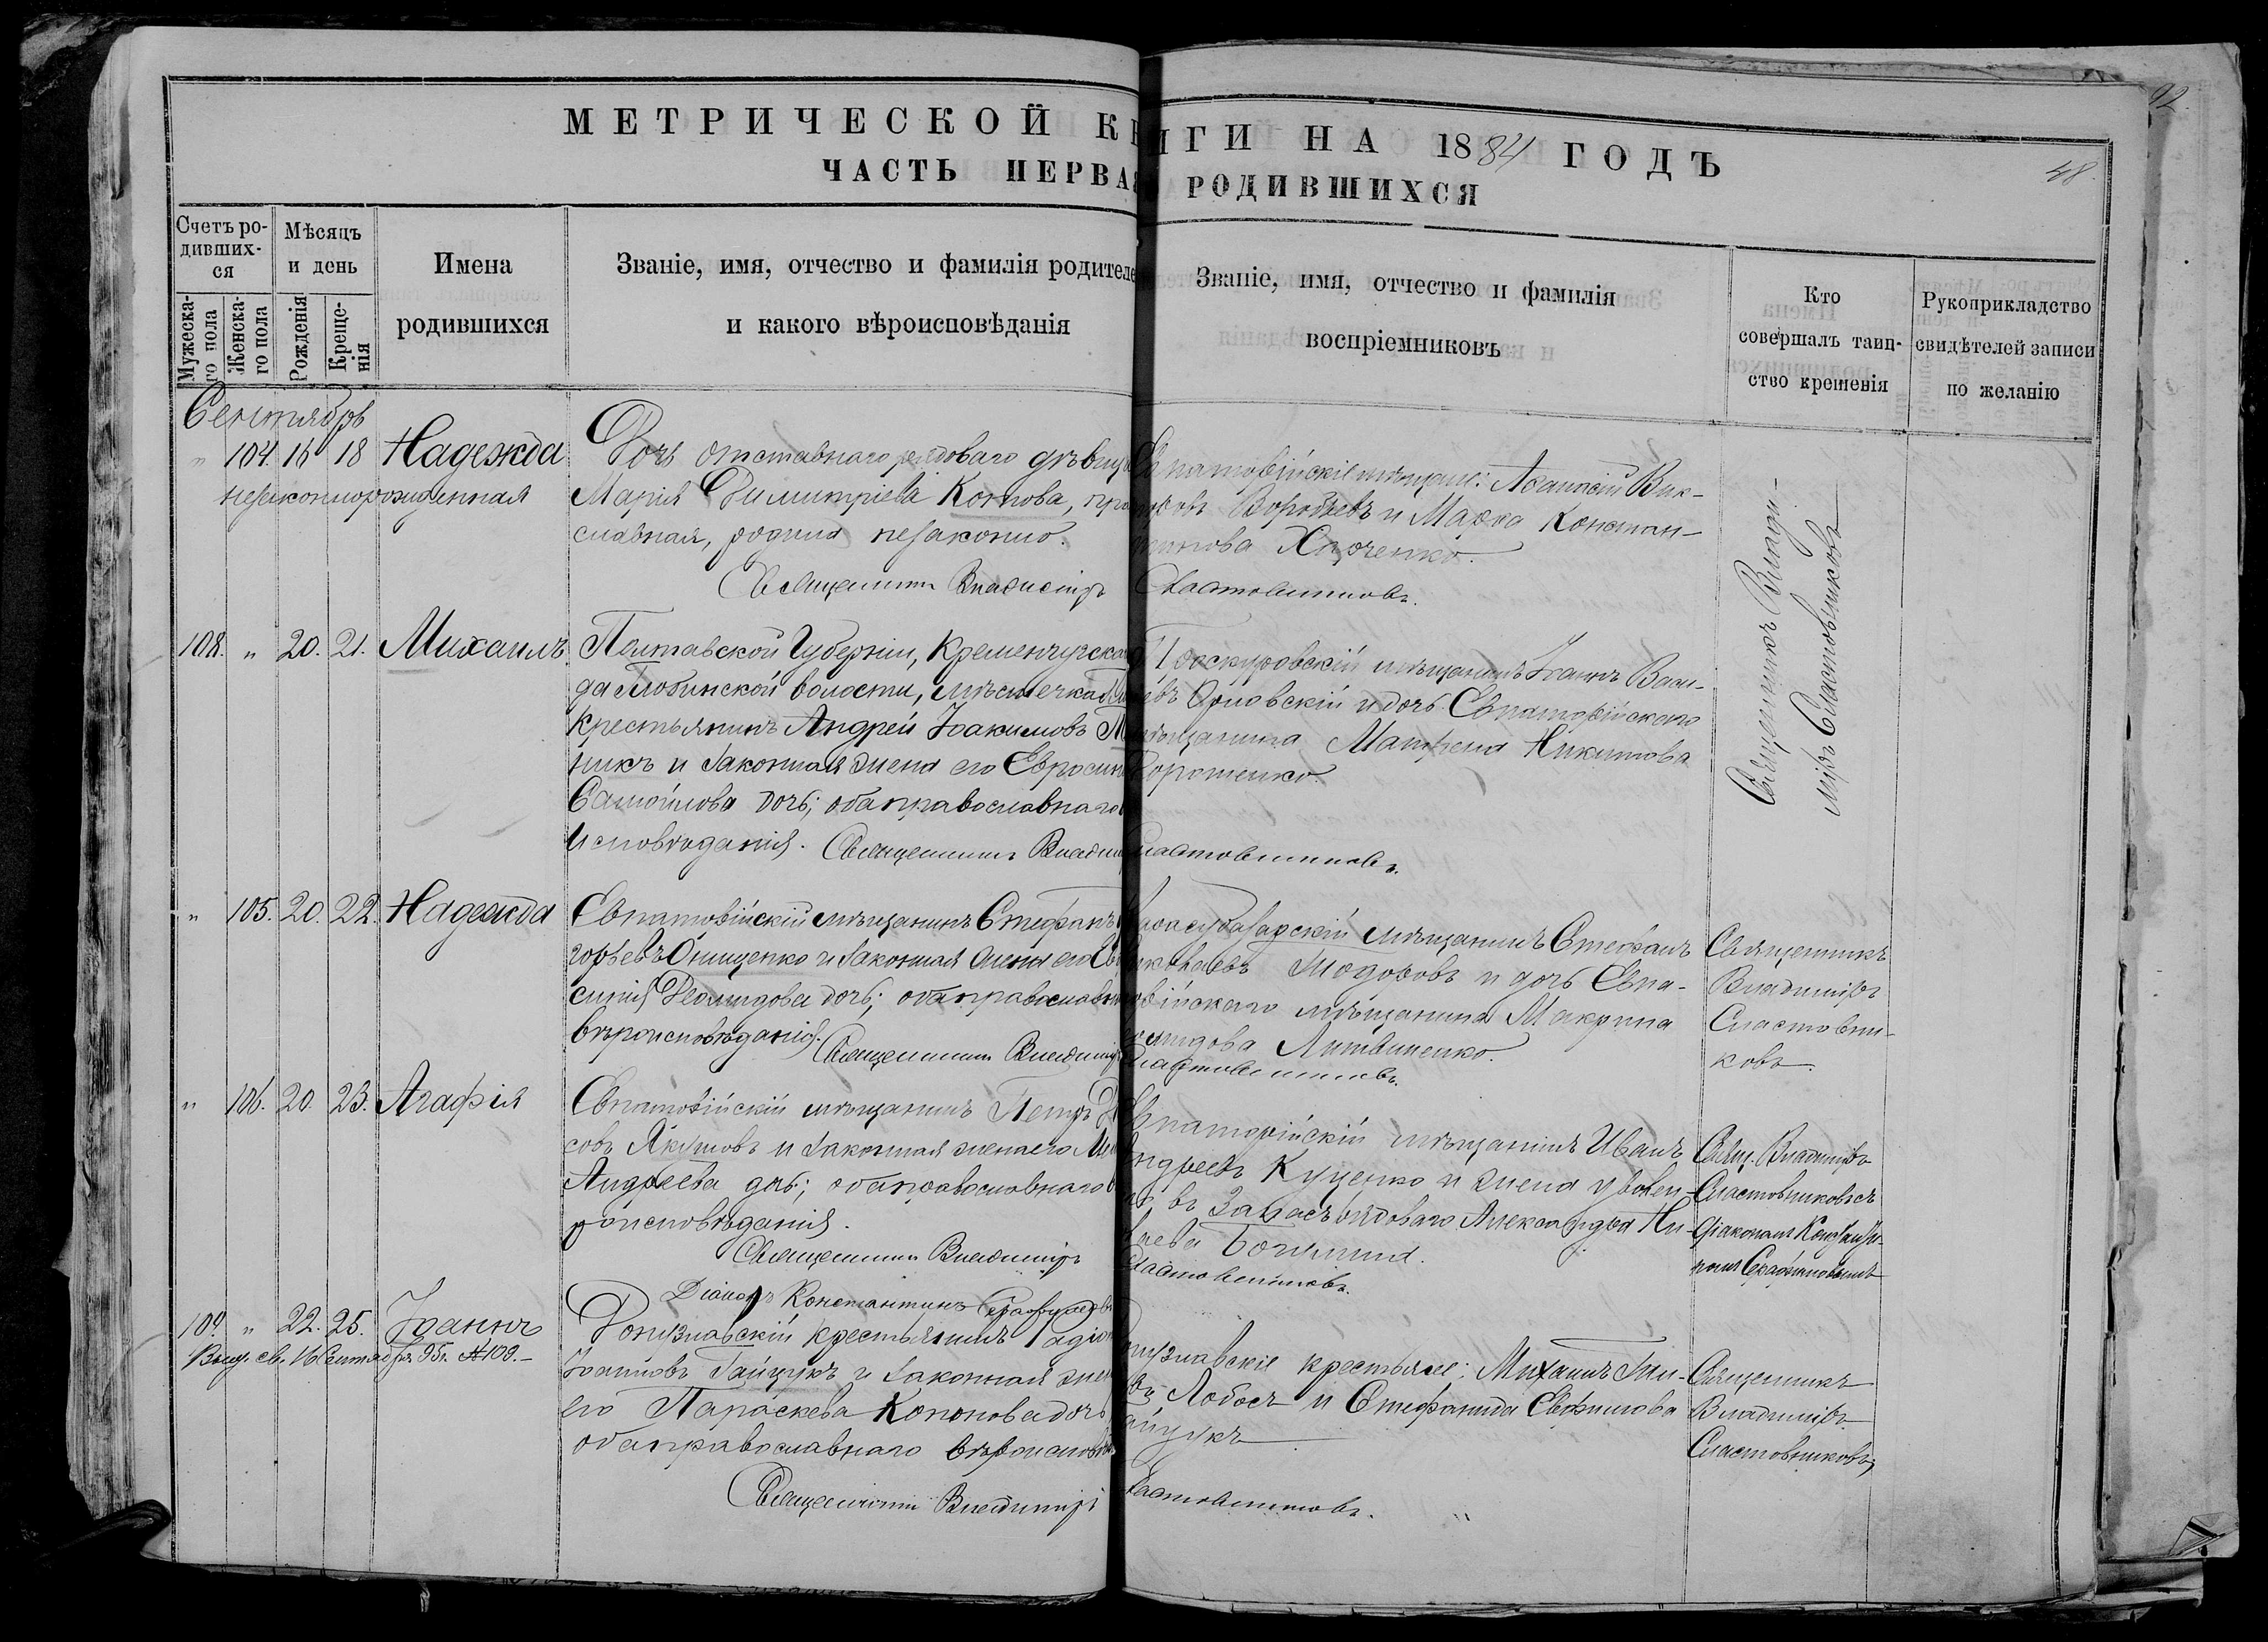 МЕТРИЧЕСКОЙ КНИГИ НА 1884 ГОДЪ
ЧАСТЬ ПЕРВАЯ РОДИВШИХСЯ
92.
48.
Счетъ ро-
дивших-
ся
Мужеска-
го пола
Женска-
го пола
Мѣсяцъ
и день
Рожденія
Креще-
нія
Имена
родившихся
Званіе, имя, отчество и фамилія родителе
и какого вѣроисповѣданія
Званіе, имя, отчество и фамилія
воспріемниковъ
Кто
совершалъ таин-
ство крещенія
Рукоприкладство
свидѣтелей записи
по желанію
Сентябрь
" 104. 16 18 Надежда
незаконнорожденная
Дочь отставнаго рядоваго дѣвица
Марія Димитріева Котова, пра
славная, родила незаконно.
Священникъ Владиміръ
Евпаторійскіе мѣщане: Аѳанасій Вик-
торовъ Воробьевъ и Марѳа Констан-
тинова
Сластовниковъ.
Священникъ Влади-
міръ Сластовниковъ
108. " 20. 21. Михаилъ
Полтавской Губерніи, Кременчугска
да Глобинской волости, мѣстечка
крестьянинъ Андрей Іоакимовъ
никъ и законная жена его Евросин
Самойлова дочь; оба православнаго
исповѣданія. Священникъ Владим
Проскуровскій мѣщанинъ Іоаннъ Васи-
евъ Орловскій и дочь Евпаторійскаго
мѣщанина Матрена Никитова
Сластовниковъ.
" 105. 20. 22. Надежда
Евпаторійскій мѣщанинъ Стефанъ
горьевъ Онищенко и законная жена его Ев
синія Леонидова дочь; оба православн
вѣроисповѣданія. Священникъ Владимі
Карасубазарскій мѣщанинъ Стефанъ
Николаевъ Тодоровъ и дочь Евпа-
торійскаго мѣщанина Макрина
Литвиненко.
Сластовниковъ.
Священникъ
Владиміръ
Сластовни-
ковъ.
" 106. 20. 23. Агафія
Евпаторійскій мѣщанинъ Петръ
совъ Якимовъ и законная жена его
Андреева дочь; оба православнаго в
роисповѣданія.
Священникъ Владиміръ
Діаконъ Константинъ Серафимовъ
Евпаторійскій мѣщанинъ Иванъ
Андреевъ Куценко и жена уволен-
въ запасъ рядоваго Александра Ни-
лаева
Сластовниковъ.
Свящ. Владиміръ
Сластовниковъ съ
діакономъ Константи-
номъ Серафимовымъ
109. " 22. 25. Іоаннъ
Выд. св. 16 Сентября 95 г. №109.-
Донузлавскій крестьянинъ Радіо
Іоанновъ Гайцукъ и законная жен
его Параскева Кононова дочь
оба православнаго вѣроисповѣ
Священникъ Владиміръ
Донузлавскіе крестьяне: Михаилъ
Лобосъ и Стефанида Евфимова
айцукъ
Сластовниковъ.
Священникъ
Владиміръ
Сластовниковъ